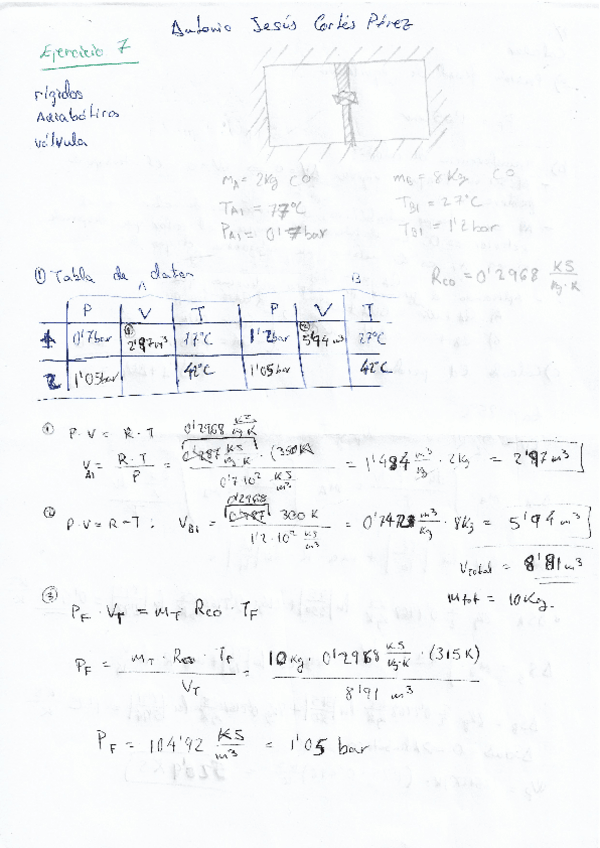 Antonio Jesús Cortés Pérez
Ejercicio 7
rígidos
Adiabáticos
válvula
mA = 2 Kg CO
mB = 8 Kg CO
TA1 = 77°C
TB1 = 27°C
PA1 = 0'7 bar
TB1 = 1'2 bar
RCO = 0'2968 KJ/Kg·K
① Tabla de datos
A B
P V T P V T
1 0'7bar ① 2'97m³ 77°C 1'2bar ② 5'94 m³ 27°C
2 1'05bar 42°C 1'05bar 42°C
① P·V = R·T
VA1 = R·T / P = 0'2968 KJ/Kg·K · (350K) / 0'7·10² KJ/m³ = 1'484 m³/Kg · 2Kg = 2'97 m³
② P·V = R·T : VB1 = 0'2968 · 300 K / 1'2·10² KJ/m³ = 0'742 m³/Kg · 8Kg = 5'94 m³
Vtotal = 8'91 m³
mtot = 10 Kg.
③ PF · VT = mT · RCO · TF
PF = mT · RCO · TF / VT = 10 Kg · 0'2968 KJ/Kg·K · (315K) / 8'91 m³
PF = 104'92 KJ/m³ = 1'05 bar